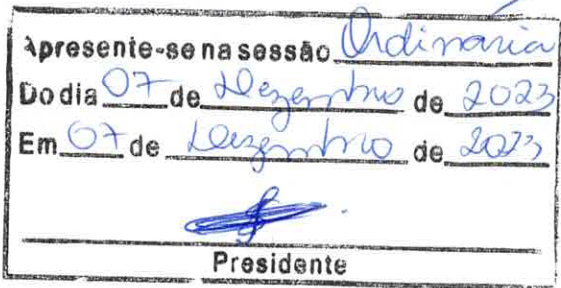 Apresente-se na sessão Ordinária
Do dia 07 de Dezembro de 2023
Em 07 de Dezembro de 2023
Presidente